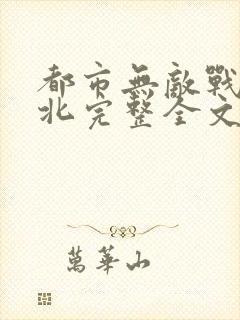 都市無敵戰
北完整全文
萬華山